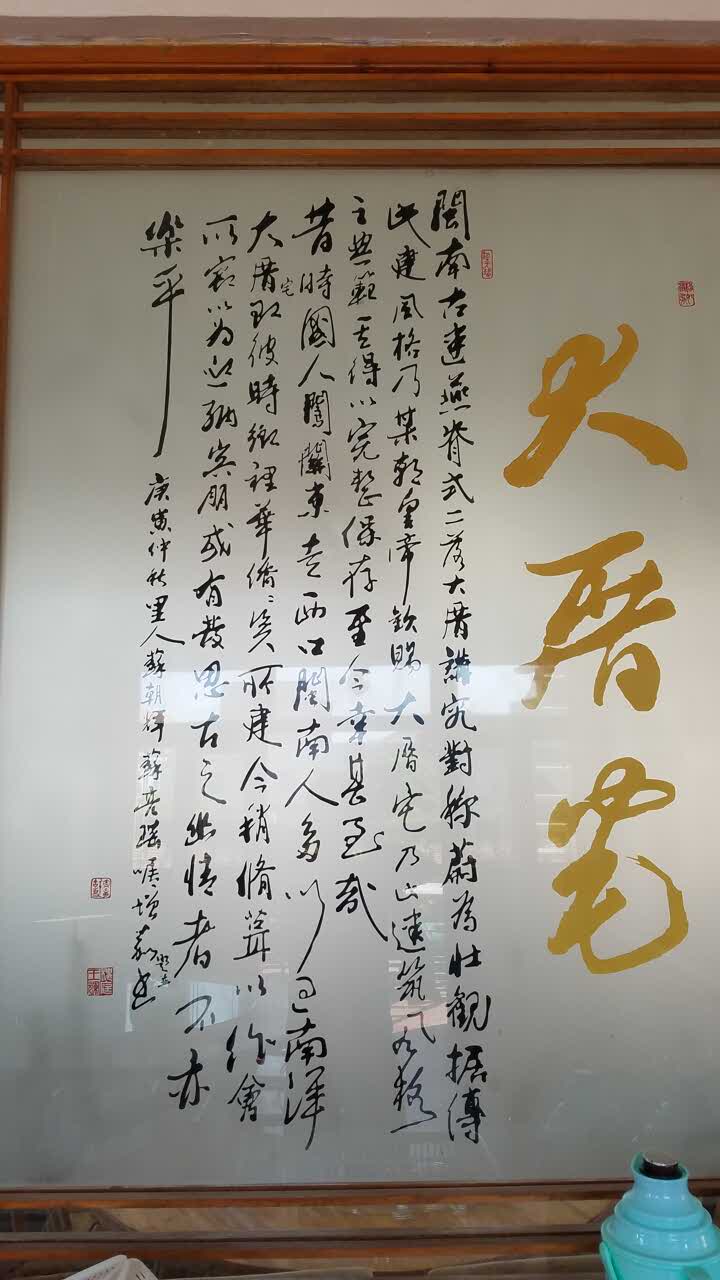 大厝宅
閩南古建燕脊式二落大厝講究對稱蔚為壯觀據傳
此建風格乃某朝皇帝欽賜大厝宅乃此建筑風格
之典範其得以完整保存至今幸甚至哉
昔時國人闖關東走西口閩南人多以過南洋
大厝宅取彼時鄉裡華僑僑資所建今稍脩葺以作會
所宅以為迎納賓朋或有發思古之幽情者不亦
樂乎
庚寅仲秋里人蘇朝輝蘇嘱增書